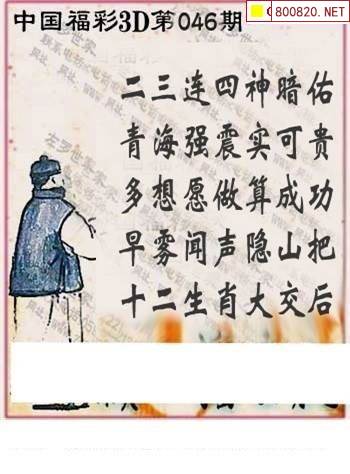 中国福彩3D第046期
800820.NET
二三连四神暗佑
青海强震实可贵
多想愿做算成功
早雾闻声隐山把
十二生肖大交后